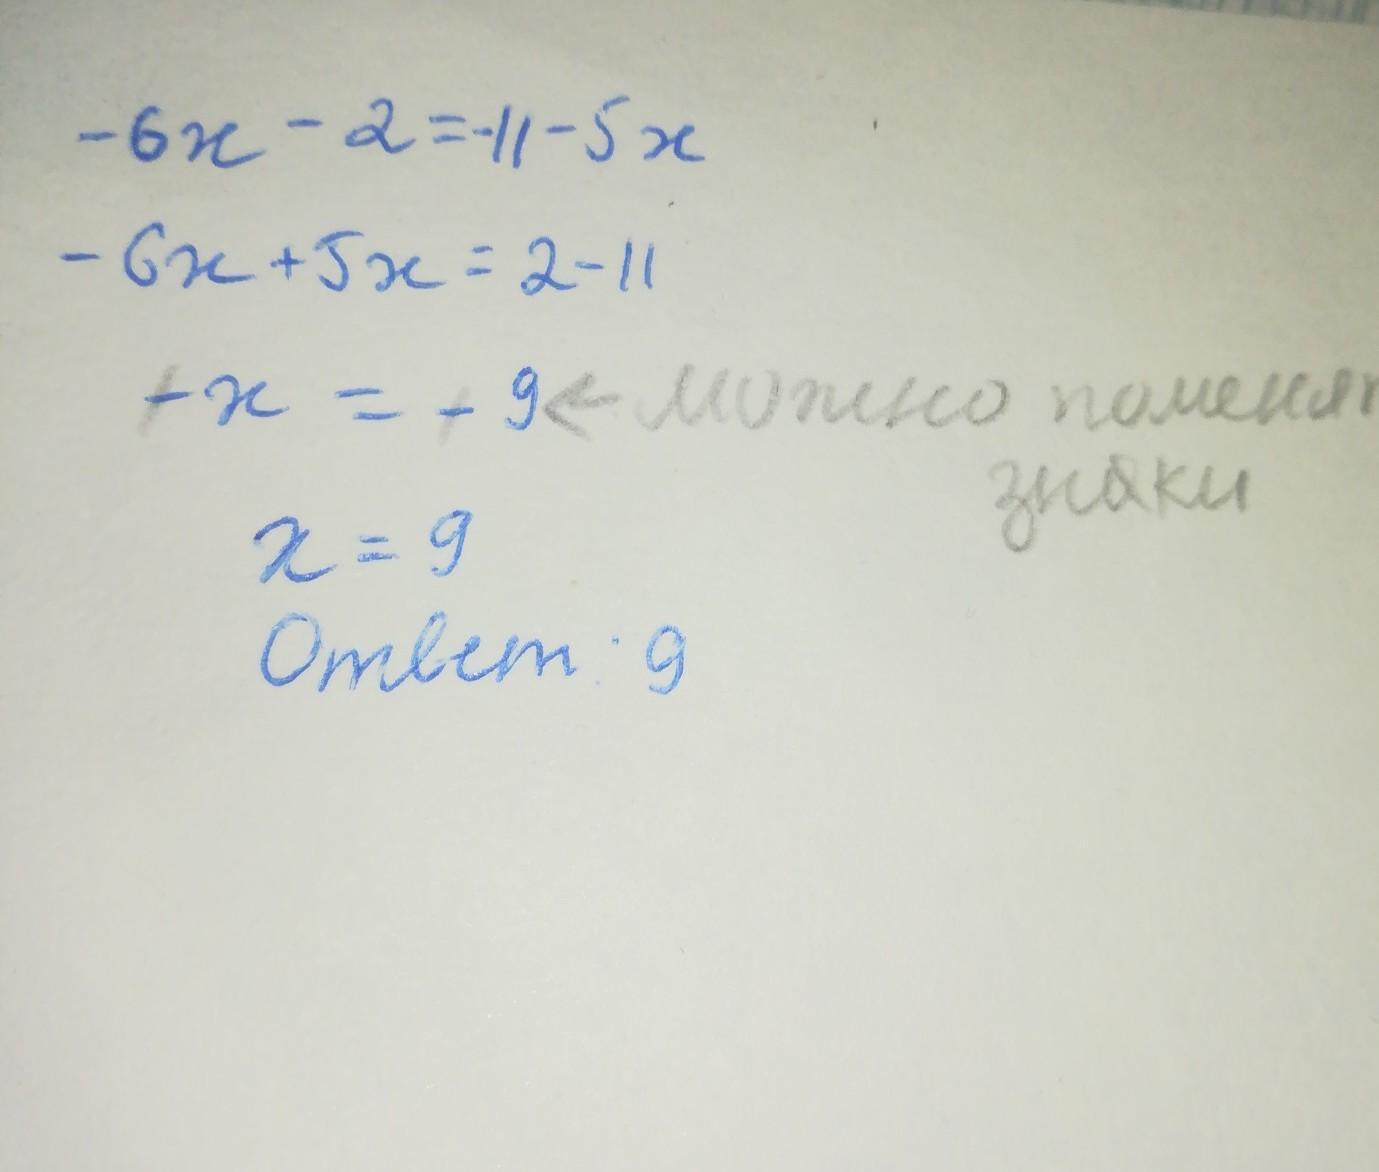 -6x - 2 = -11 - 5x
-6x + 5x = 2 - 11
-x = -9 ← можно поменят
знаки
x = 9
Ответ: 9